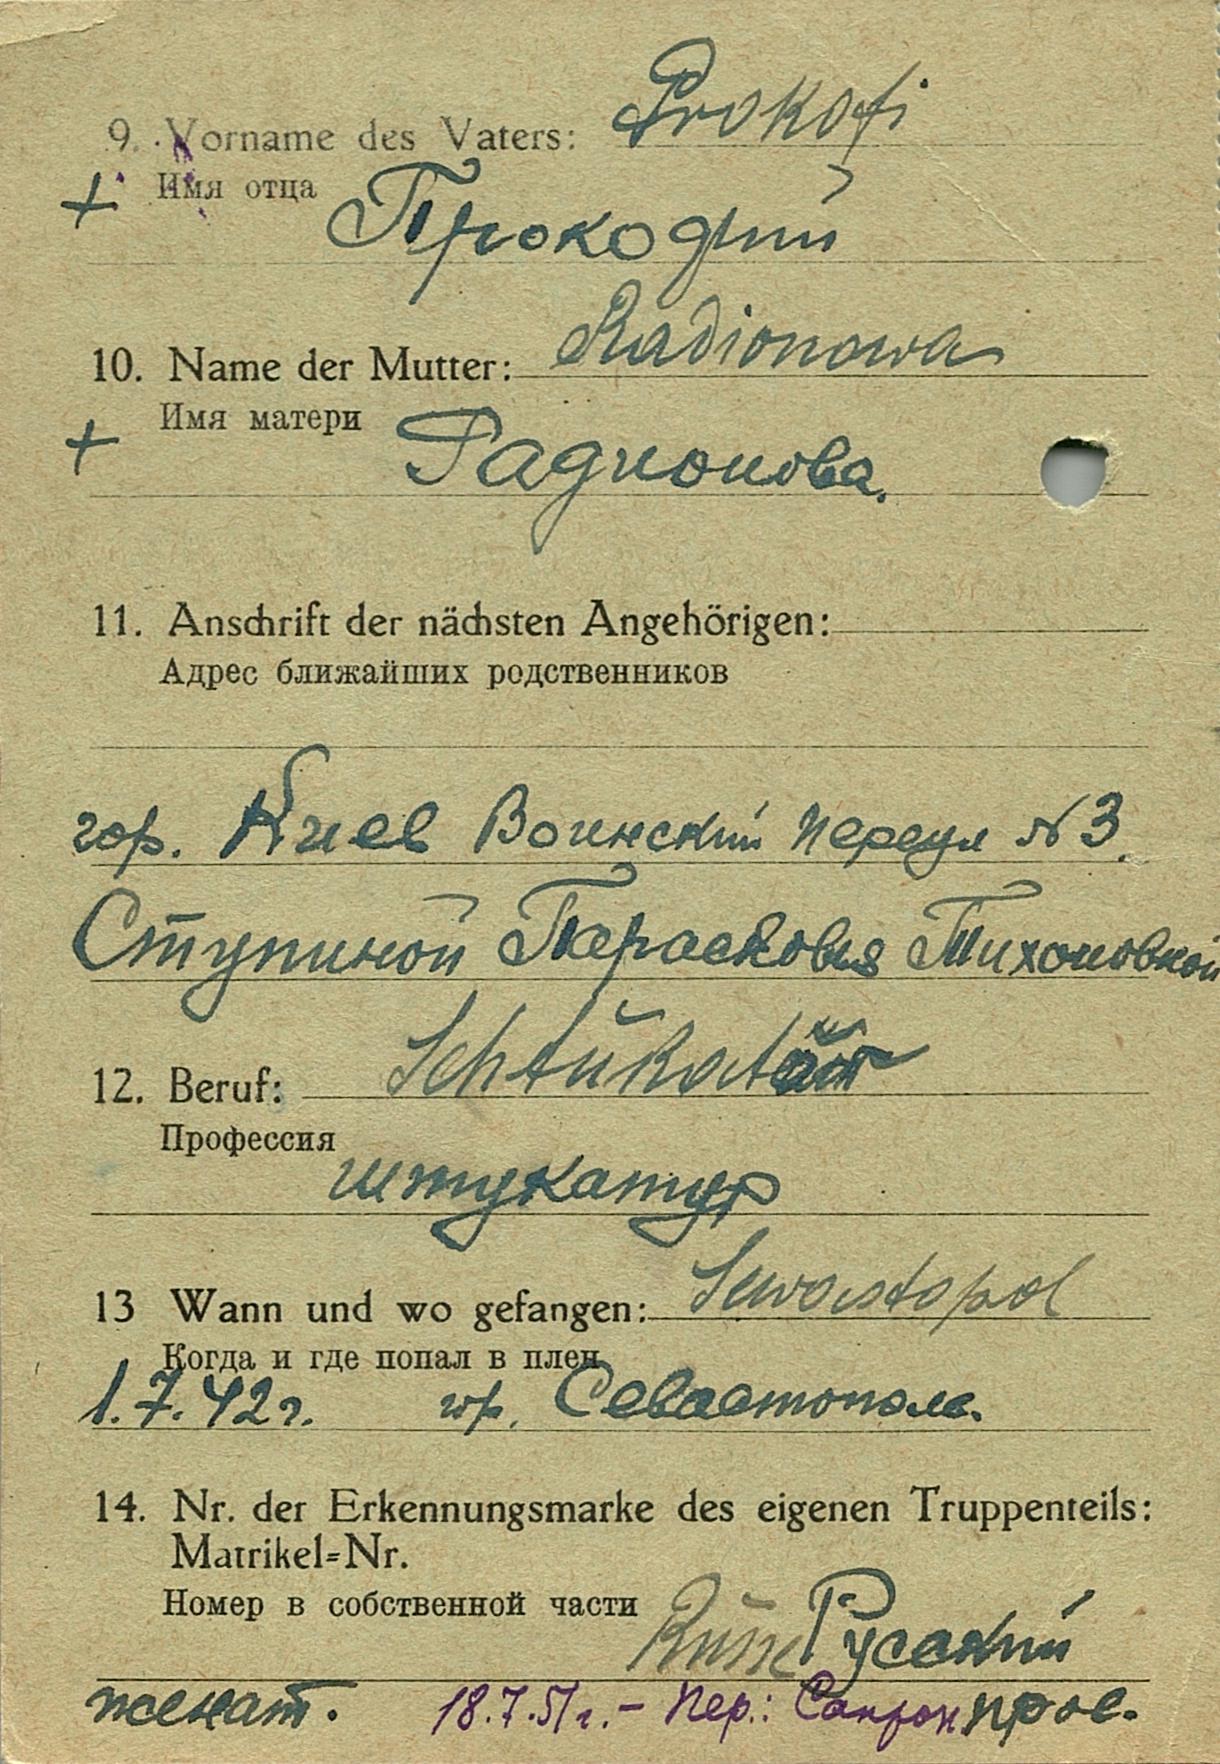 9. Vorname des Vaters: Prokofi
+ Имя отца
Прокофий
10. Name der Mutter: Radionowa
+ Имя матери
Радионова.
11. Anschrift der nächsten Angehörigen:
Адрес ближайших родственников
гор. Киев Воинский переул №3.
Ступиной Парасковья Тихоновной
12. Beruf: Schtukatur
Профессия
штукатур
13 Wann und wo gefangen: Sewastopol
Когда и где попал в плен
1.7.42 г. гор. Севастополь.
14. Nr. der Erkennungsmarke des eigenen Truppenteils:
Matrikel=Nr.
Номер в собственной части
Русский
женат. 18.7.51 г. – Пер.: прос.